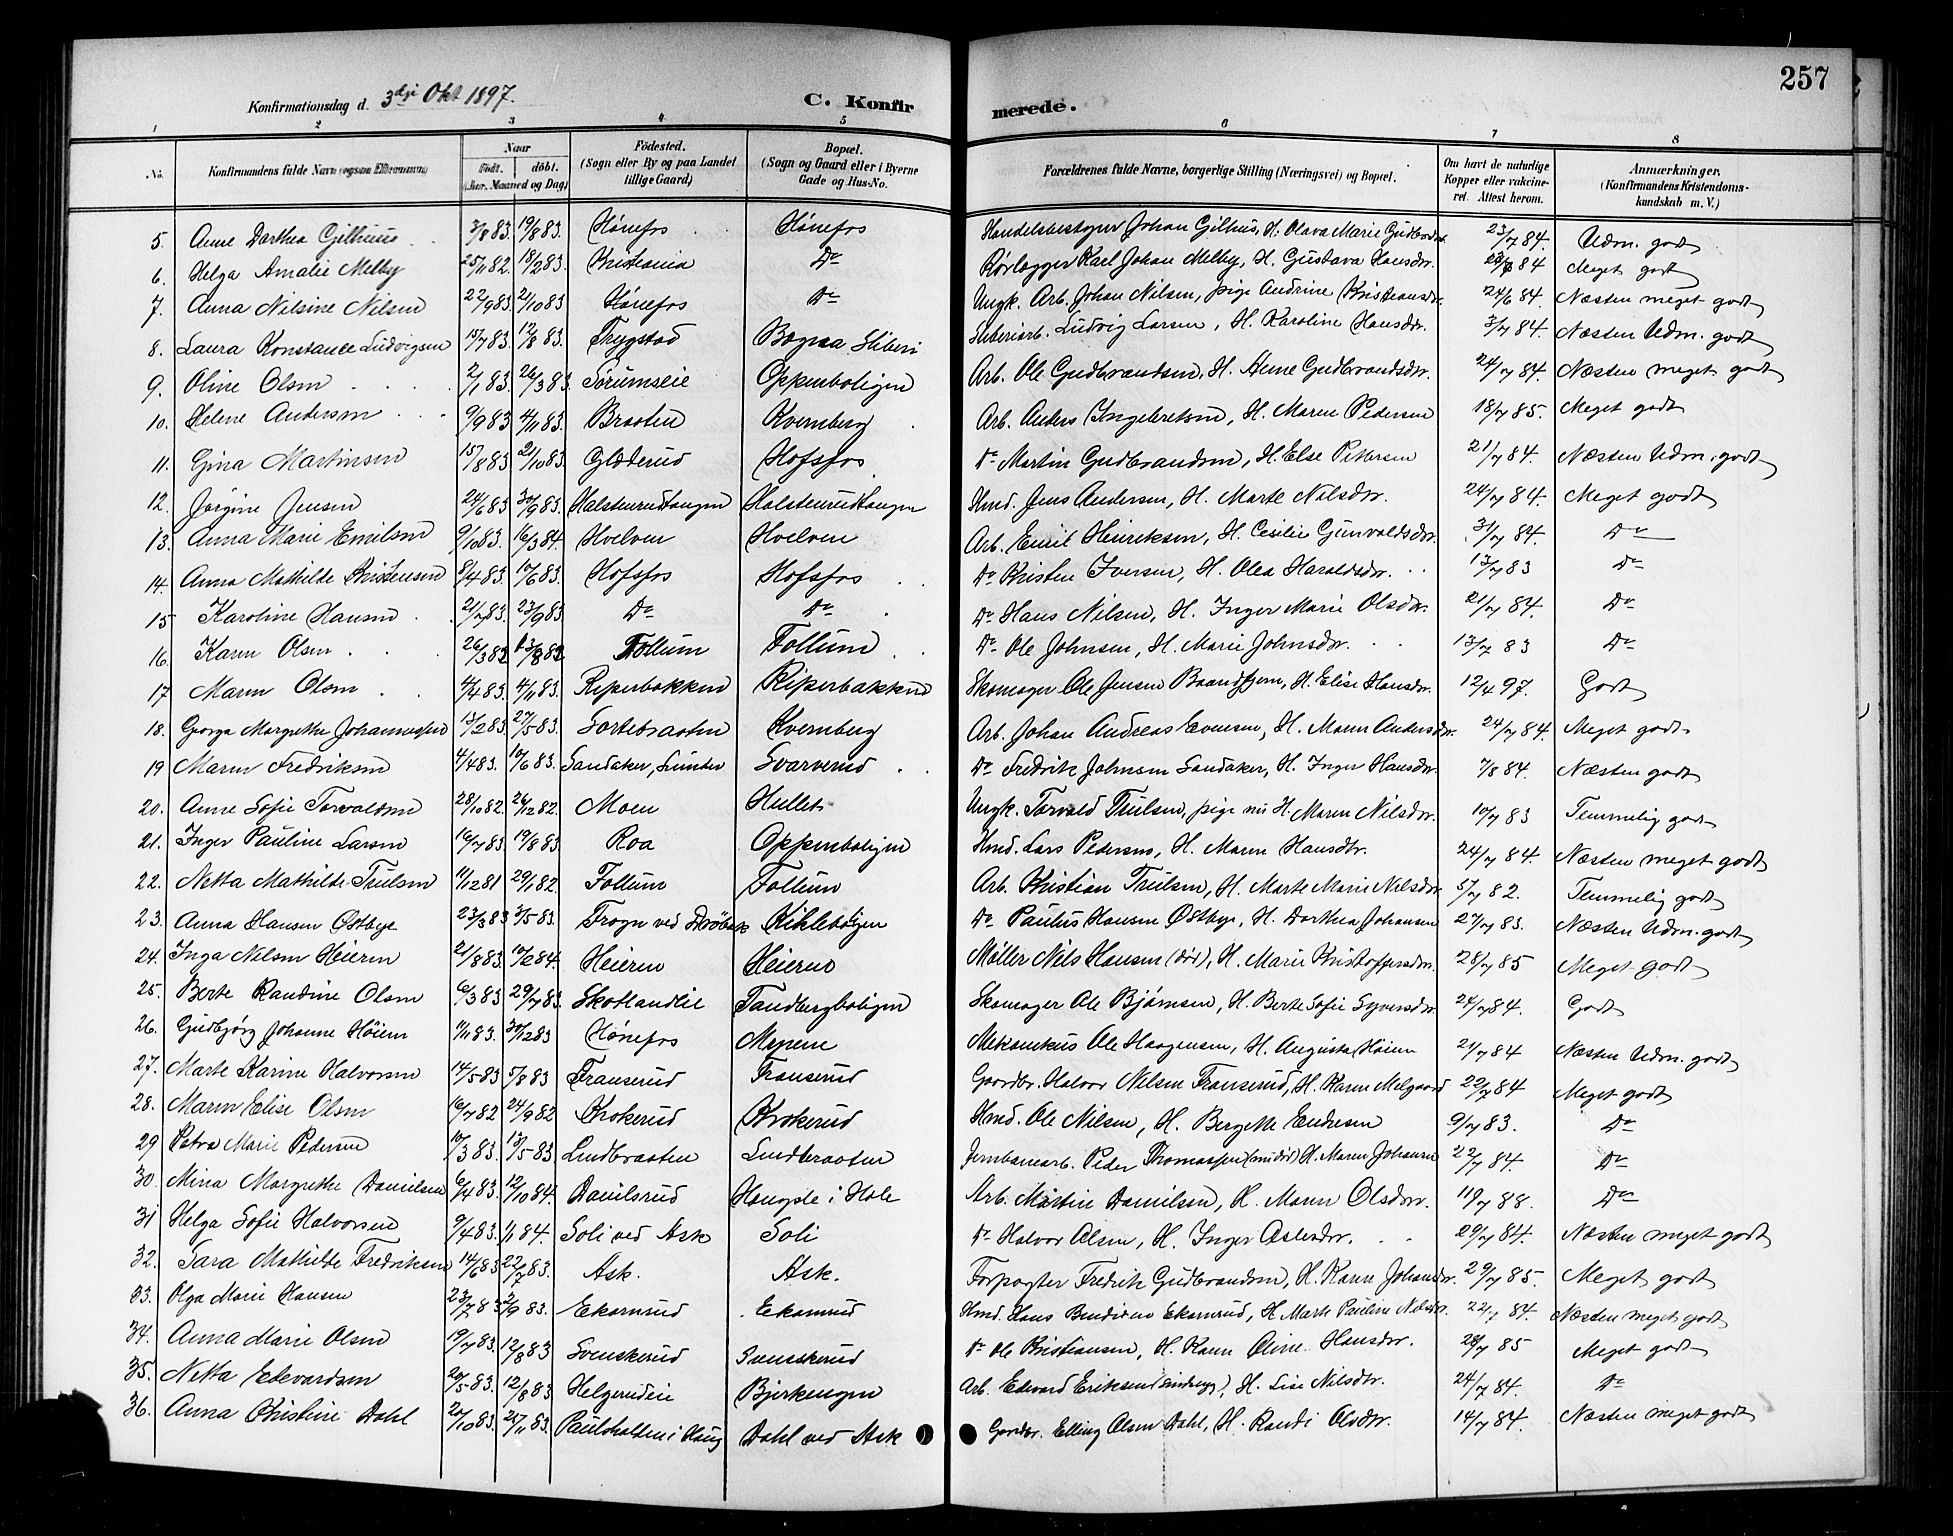 257
Konfirmationsdag d. 3die Okt 1897. C. Konfirmerede.
1 2 3 4 5 6 7 8
No. Konfirmandens fulde Navn (ogsaa Efternavn) Naar Födt. döbt. (Aar. Maaned og Dag) Födested. (Sogn eller By og paa Landet tillige Gaard.) Bopæl. (Sogn og Gaard eller i Byerne Gade og Hus-No. Forældrenes fulde Navne, borgerlige Stilling (Næringsvei) og Bopæl. Om havt de naturlige Kopper eller vakcineret. Attest herom. Anmærkninger. (Konfirmandens Kristendomskundskab m. V.)
5. Anne Dorthea Gilhuus 3/8 83. 19/8 83. Hønefos Hønefos Handelsbestyrer Johan Gilhus, H. Olava Marie Gudbrdsdr. 23/7 84. Udm. godt
6. Helga Amalie Melby 25/11 82. 18/2 83. Kristiania Do Rørlægger Karl Johan Melby, H. Gustava Hansdr. 84 Meget godt
7. Anna Nilsine Nilsen 22/9 83. 21/10 83. Hønefos Do Ungk. Arb. Johan Nilsen, pige Andrine Kristiansdr. 24/6 84. Næsten meget godt
8. Laura Konstance Ludvigsen 15/7 83. 12/8 83. Trygstad Begna Sliberi Sliberiarb. Ludvig Larsen, H. Karoline Hansdr. 3/7 84. Næsten Udm. godt
9. Oline Olsen 2/1 83. 26/3 83. Sørumseie Oppenboligen Arb. Ole Gudbrandsen, H. Anne Gudbrandsdr. 24/7 84. Næsten meget godt
10. Helene Andersen 9/9 83 4/11 83. Braaten Kvernberg Arb. Anders Ingebretsen, H. Maren Pedersen 18/7 85. Meget godt
11. Gina Martinsen 15/8 83 21/10 83. Glæderud Hofsfos Do Martin Gudbrandsen, H. Else Pettersen 21/7 84. Næsten Udm. godt
12. Jørgine Jensen 24/6 83 30/9 83. Halstenrudtangen Halstenrudtangen Hmd. Jens Andersen, H. Marte Nilsdr. 24/7 84. Meget godt
13. Anna Marie Emilsen 9/10 83. 16/3 84. Hvelven Hvelven Arb. Emil Henriksen, H. Cesilie Gunvaldsdr. 31/7 84. Do
14. Anna Mathilde Kristensen 8/4 83. 17/6 83. Hofsfos Hofsfos Do Kristen Iversen, H. Olea Haraldsdr. 13/7 83 Do
15 Karoline Hansen 21/7 83. 23/9 83. Do Do Do Hans Nilsen, H. Inger Marie Olsdr. 21/7 84. Do
16. Karen Olsen 26/3 82 13/8 82 Follum Follum Do Ole Johnsen, H. Marie Johnsdr. 13/7 83 Do
17 Maren Olsen 4/4 83. 4/11 83. Reperbakken Reperbakken Skomager Ole Jensen Baandfjern, H. Elise Hansdr. 12/4 97. Godt
18. Georga Margrethe Johannessen 13/2 83. 27/5 83. Sortebraaten Kvernberg Arb. Johan Andreas Evensen, H. Maren Andersdr. 24/7 84. Meget godt
19 Maren Fredriksen 4/4 83. 10/6 83. Sandaker, Lunder Svarverud Do Fredrik Johnsen Sandaker, H. Inger Hansdr. 7/8 84. Næsten godt
20. Anne Sofie Torvaldsen 28/10 82. 26/12 82. Moen Hullet Ungk. Torvald Trulsen, pige nu H. Maren Nilsdr. 10/7 83 Temmelig godt
21. Inger Pauline Larsen 16/7 83. 19/8 83. Roa Oppenboligen Hmd. Lars Pedersen, H. Maren Hansdtr. 24/7 84. Næsten meget godt
22. Netta Mathilde Trulsen 11/12 81 29/1 82. Follum Follum Arb. Kristian Trulsen, H. Marte Marie Nilsdr. 5/7 82. Temmelig godt
23. Anna Hansen Østbye 23/3 83 3/5 83. Frogn ved Drøbak Kihleboligen Do Paulus Hansen Østbye, H. Dorthea Johansen 27/7 83. Næsten Udm. godt
24. Inga Nilsen Heieren 21/8 83. 10/2 84. Heieren Heieren Møller Nils Hansen (død), H. Marie Kristoffersdr. 28/7 85 Meget godt
25. Berte Randine Olsen 6/3 83 29/7 83. Skotlandlie Tandbergboligen Skomager Ole Bjørnsen, H. Berte Sofie Syversdr. 24/7 84. Godt
26. Gudbjørg Johanne Höiem 11/11 83. 30/12 83 Hønefos Moene Mekanikus Ole Haagensen, H. Augusta Höiem 21/7 84 Næsten Udm. godt
27. Marte Karine Halvorsen 14/5 83 5/8 83 Transerud Transerud Gaardbr. Halvor Nilsen Transerud, H. Karen Melgaard 22/7 84 Meget godt
28. Maren Elise Olsen 16/7 82 24/9 82 Krokerud Krokerud Hmd. Ole Nilsen, H. Bergette Endresen 9/7 83. Do
29 Petra Marie Pedersen 10/3 83. 13/5 83 Lindbraaten Lindbraaten Jernbanearb. Peder Thomassen (nu død) H. Maren Johansen 22/7 84. Do
30. Mina Margrethe Danielsen 6/4 83. 12/10 84. Danielsrud Hougste i Hole Arb. Martin Danielsen, H. Maren Olsdr. 19/7 88. Do
31 Helga Sofie Halvorsen 9/4 83. 1/1 84. Soli ved Ask Soli Do Halvor Olsen, H. Inger Aslesdr. 29/7 84. Næsten meget godt
32. Sara Mathilde Fredriksen 14/6 83 22/7 83. Ask. Ask. Forpagter Fredrik Gudbrandsen, H. Karen Johansdr. 29/7 85. Meget godt
33. Olga Marie Hansen 23/7 83 2/9 83. Ekornrud Ekornrud Hmd. Hans Bendixen Ekornrud, H. Marte Pauline Nilsdr. 22/7 84. Næsten meget godt
34. Anna Marie Olsen 19/7 83. 12/8 83 Svenskerud Svenskerud Do Ole Kristiansen, H. Karen Oline Hansdr. 28/7 85 Meget godt
35. Netta Edevardsen 20/5 83. 12/8 83 Helgerudeie Bjerkengen Arb. Edvard Eriksen, H. Lise Nilsdtr. 24/7 84. Do
36. Anna Kristine Dahl 27/10 83. 25/11 83. Paulsholten i Haug Dahl ved Ask Gaardbr. Elling Olsen Dahl, H. Randi Olsdr. 14/7 84. Næsten meget godt